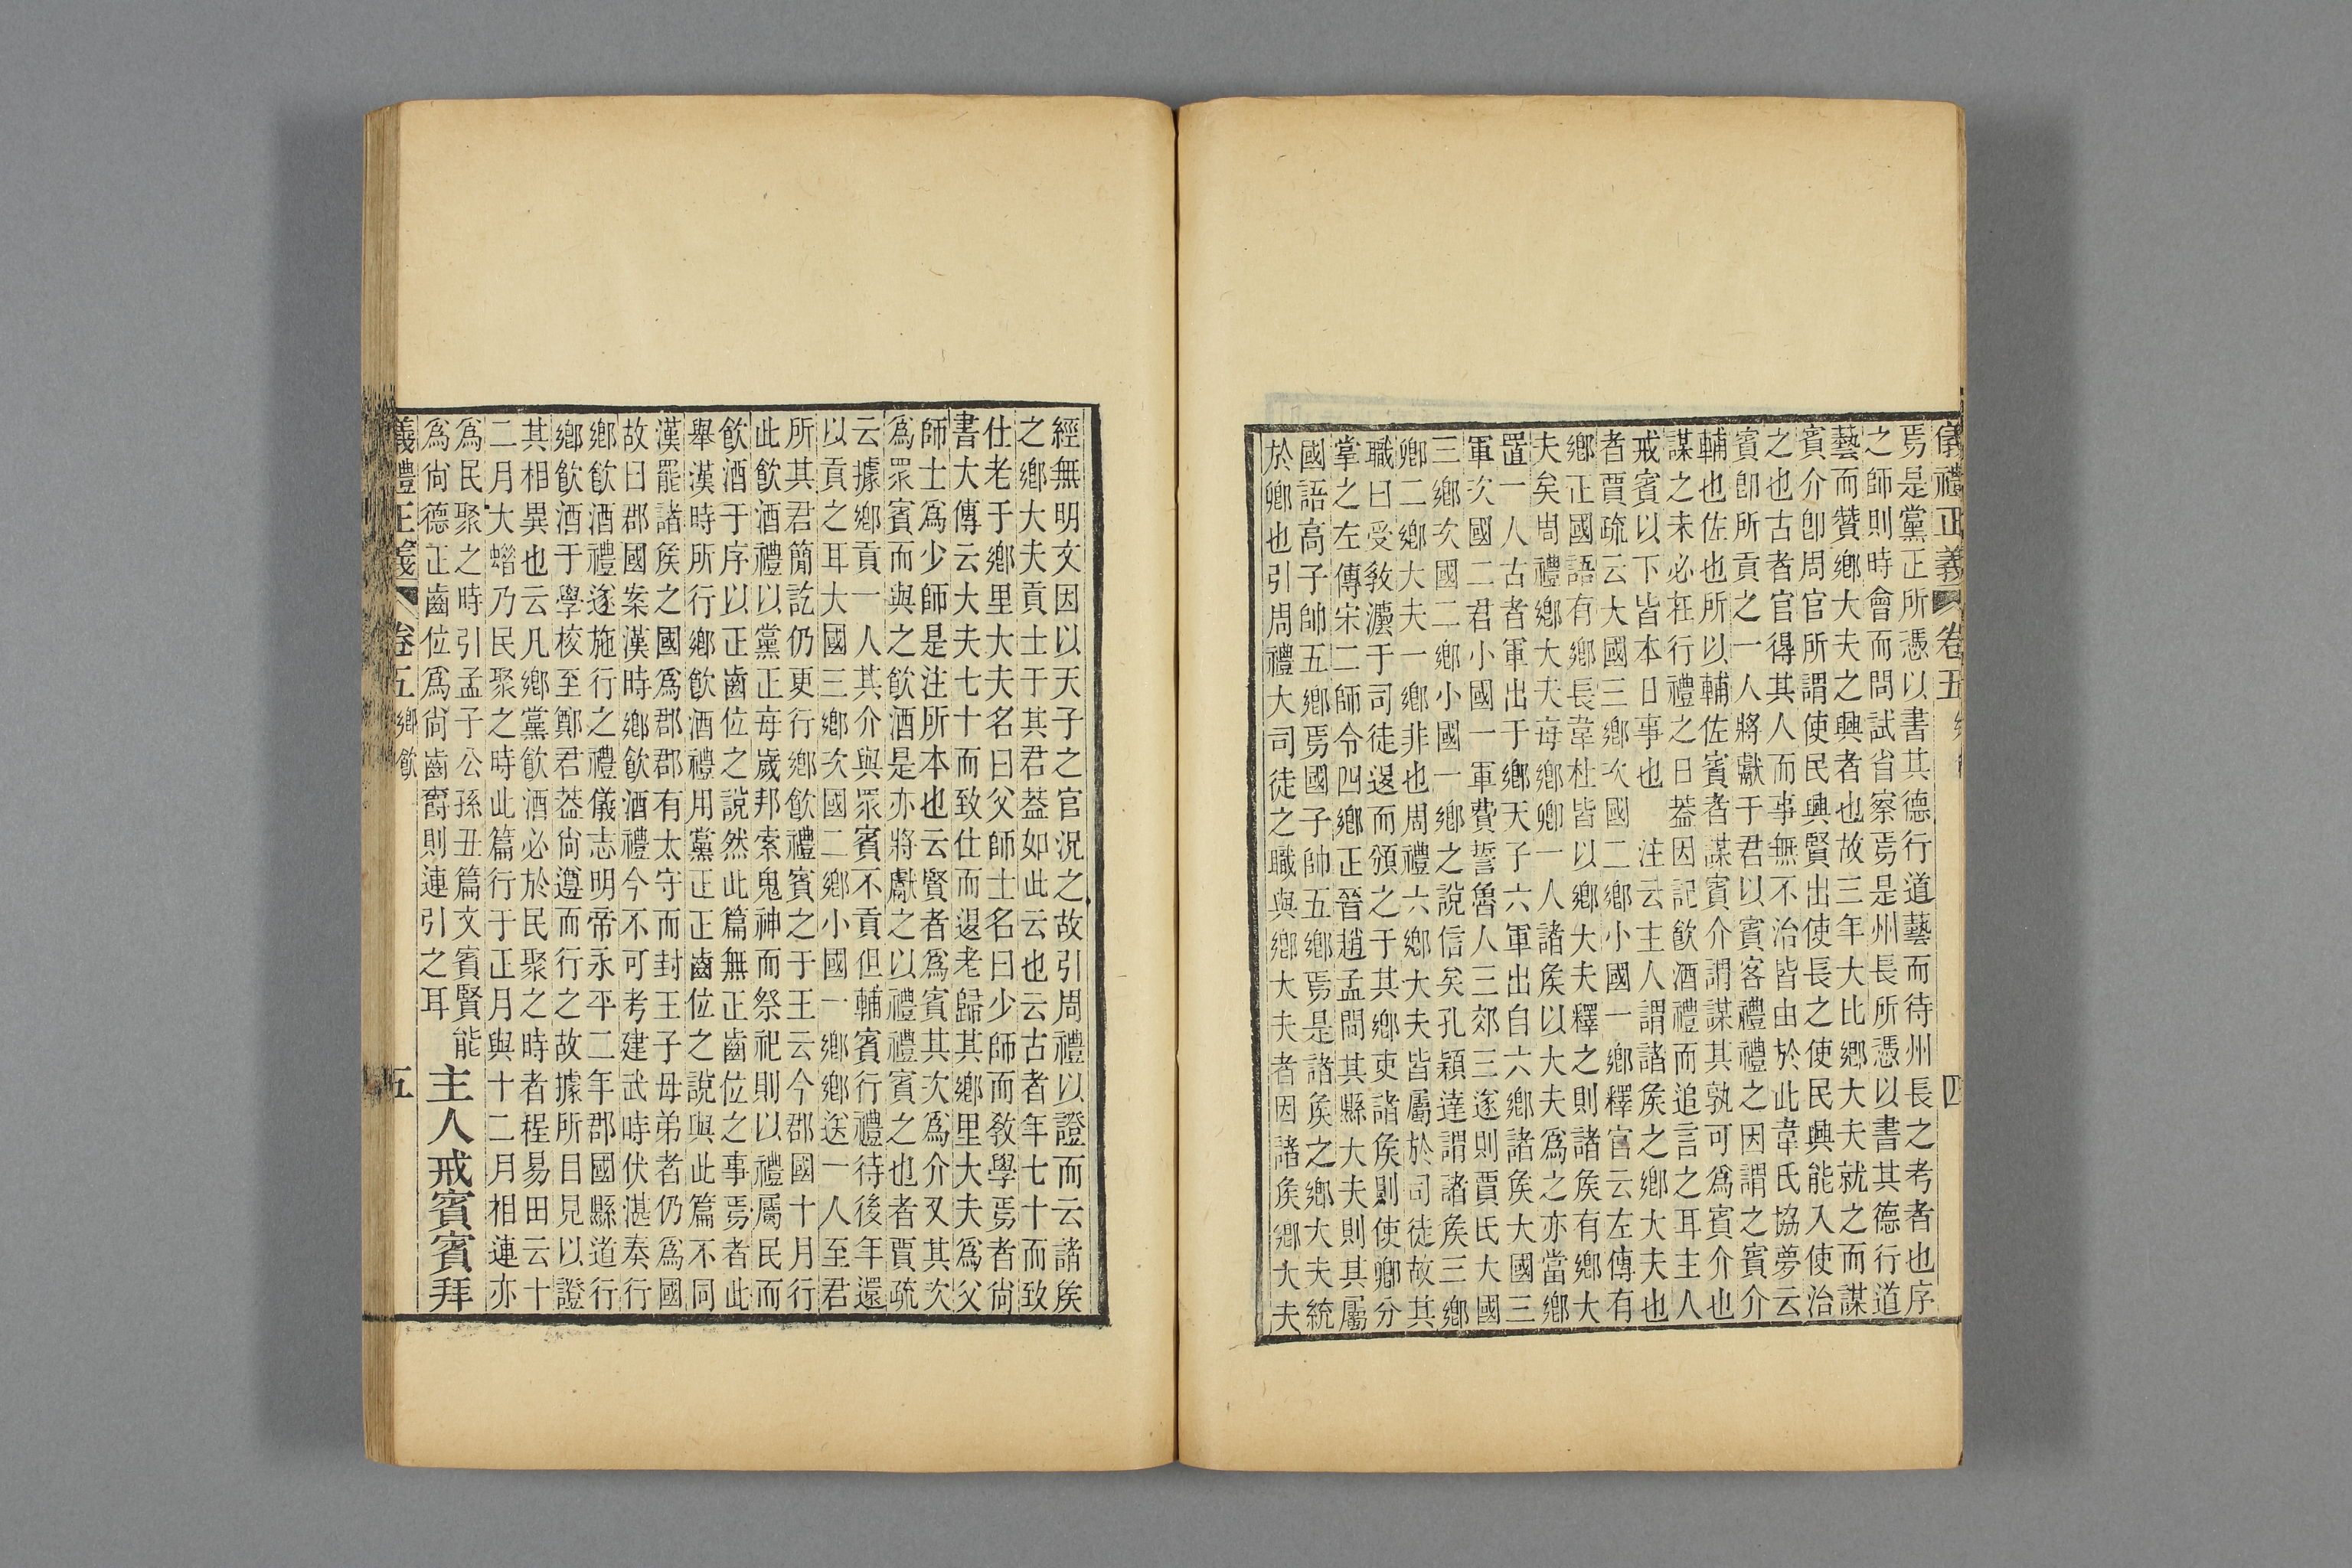 儀禮正義 卷五 四
焉是黨正所憑以書其德行道藝而待州長之考者也序
之師則時會而問試省察焉是州長所憑以書其德行道
藝而贊鄉大夫之興者也故三年大比鄉大夫就之而謀
賓介卽周官所謂使民興賢出使長之使民興能入使治
之也古者官得其人而事無不治皆由於此韋氏協夢云
賓卽所貢之一人將獻于君以賓客禮禮之因謂之賓介
輔也佐也所以輔佐賓者謀賓介謂謀其孰可爲賓介也
謀之未必在行禮之日葢因記飮酒禮而追言之耳主人
戒賓以下皆本日事也 注云主人謂諸矦之鄉大夫也
者賈疏云大國三鄉次國二鄉小國一鄉釋官云左傳有
鄉正國語有鄉長韋杜皆以鄉大夫釋之則諸矦有鄉大
夫矣周禮鄉大夫每鄉卿一人諸矦以大夫爲之亦當鄉
置一人古者軍出于鄉天子六軍出自六鄉諸矦大國三
軍次國二君小國一軍費誓魯人三郊三遂則賈氏大國
三鄉次國二鄉小國一鄉之說信矣孔穎達謂諸矦三鄉
卿二鄉大夫一鄉非也周禮六鄉大夫皆屬於司徒故其
職曰受敎灋于司徒退而頒之于其鄉吏諸矦則使卿分
掌之左傳宋二師令四鄉正晉趙孟問其縣大夫則其屬
國語高子帥五鄉焉國子帥五鄉焉是諸矦之鄉大夫統
於卿也引周禮大司徒之職與鄉大夫者因諸矦鄉大夫
經無明文因以天子之官況之故引周禮以證而云諸矦
之鄉大夫貢士于其君葢如此云也云古者年七十而致
仕老于鄉里大夫名曰父師士名曰少師而敎學焉者尙
書大傳云大夫七十而致仕而退老歸其鄉里大夫爲父
師士爲少師是注所本也云賢者爲賓其次爲介又其次
爲眾賓而與之飮酒是亦將獻之以禮禮賓之也者賈疏
云據鄉貢一人其介與眾賓不貢但輔賓行禮待後年還
以貢之耳大國三鄉次國二鄉小國一鄉鄉送一人至君
所其君簡訖仍更行鄉飮禮賓之于王云今郡國十月行
此飮酒禮以黨正每歲邦索鬼神而祭祀則以禮屬民而
飮酒于序以正齒位之說然此篇無正齒位之事焉者此
舉漢時所行鄉飮酒禮用黨正正齒位之說與此篇不同
漢罷諸矦之國爲郡郡有太守而封王子母弟者仍爲國
故曰郡國案漢時鄉飮酒禮今不可考建武時伏湛奏行
鄉飮酒禮遂施行之禮儀志明帝永平二年郡國縣道行
鄉飮酒于學校至鄭君葢尙遵而行之故據所目見以證
其相異也云凡鄉黨飮酒必於民聚之時者程易田云十
二月大蜡乃民聚之時此篇行于正月與十二月相連亦
爲民聚之時引孟子公孫丑篇文賓賢能
爲尙德正齒位爲尙齒爵則連引之耳
主人戒賓賓拜
儀禮正義 卷五 鄉飮 五